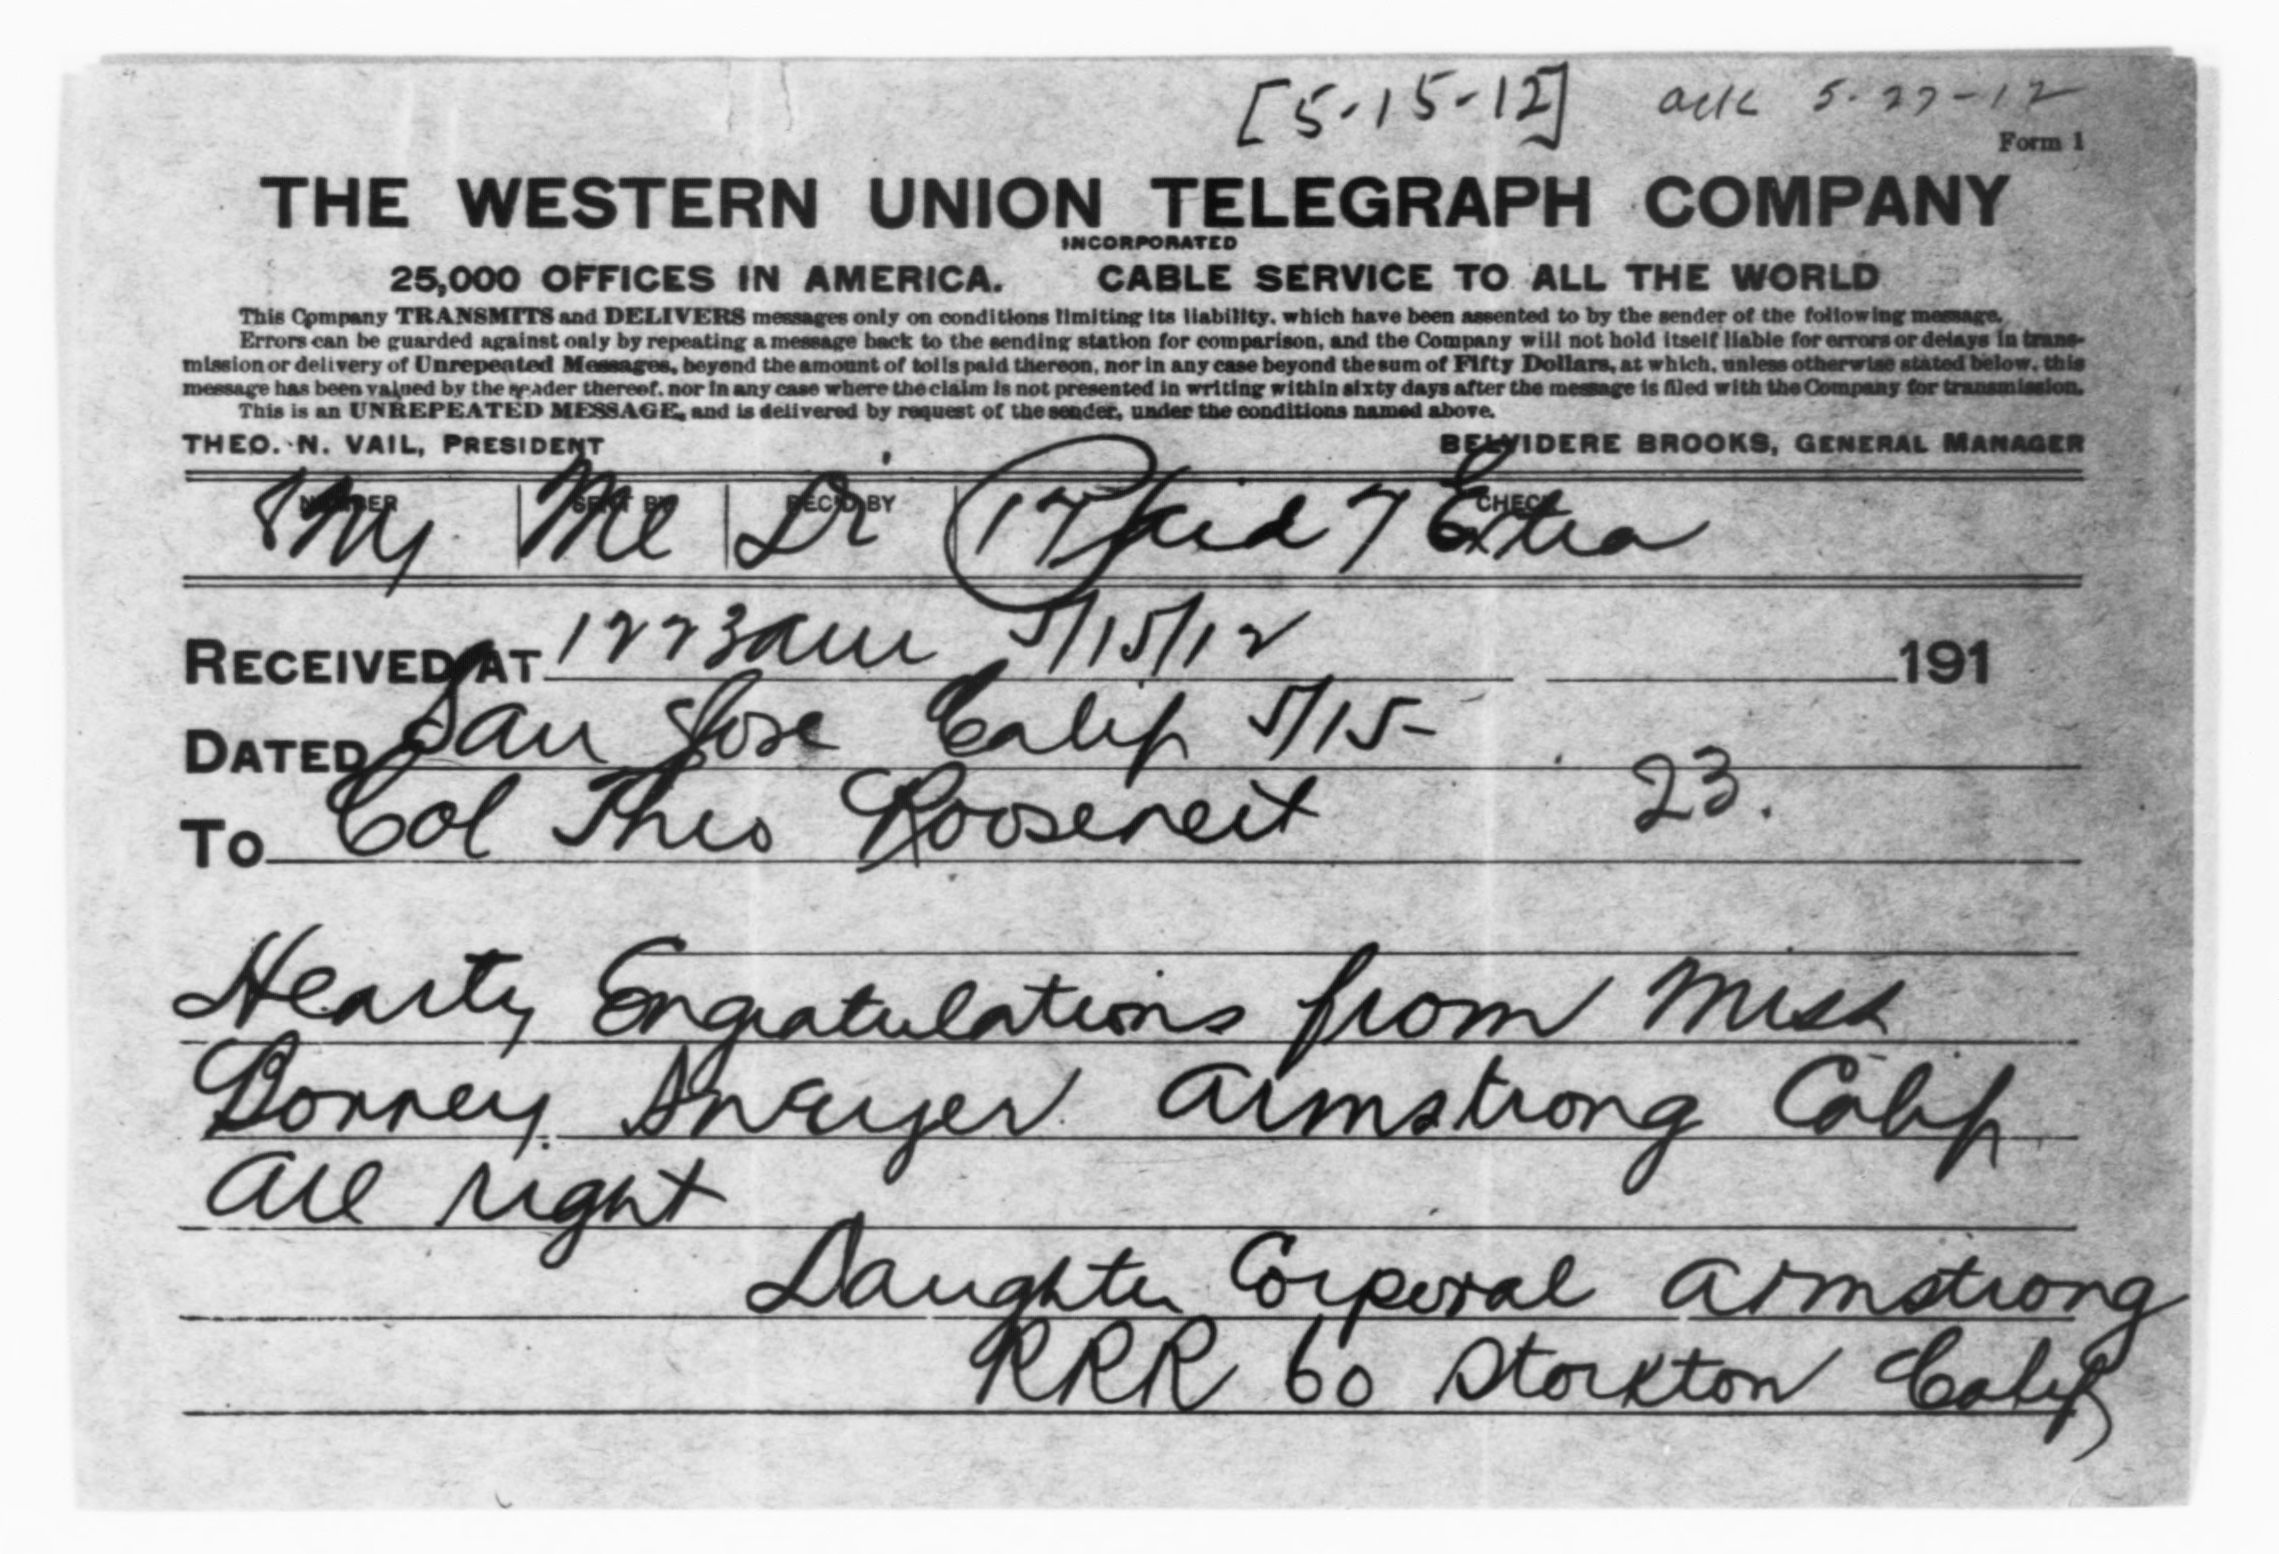 [5-15-12] ack 5-27-12
Form 1
THE WESTERN UNION TELEGRAPH COMPANY
INCORPORATED
25,000 OFFICES IN AMERICA. CABLE SERVICE TO ALL THE WORLD
This Company TRANSMITS and DELIVERS messages only on conditions limiting its liability, which have been assented to by the sender of the following message.
Errors can be guarded against only by repeating a message back to the sending station for comparison, and the Company will not hold itself liable for errors or delays in trans-
mission or delivery of Unrepeated Messages, beyond the amount of tolls paid thereon, nor in any case beyond the sum of Fifty Dollars, at which, unless otherwise stated below, this
message has been valued by the sender thereof, nor in any case where the claim is not presented in writing within sixty days after the message is filed with the Company for transmission.
This is an UNREPEATED MESSAGE, and is delivered by request of the sender, under the conditions named above.
THEO. N. VAIL, PRESIDENT BELVIDERE BROOKS, GENERAL MANAGER
NUMBER SENT BY REC'D BY CHECK
Me Di 17 Paid 7 Extra
RECEIVED AT 1223am 5/15/12 191
DATED San Jose Calif 5/15-
TO Col Theo Roosevelt 23.
Hearty Congratulations from Miss
Bonney Armstrong Calif
all right
Daughter Corporal Armstrong
RRR 60 Stockton Calif